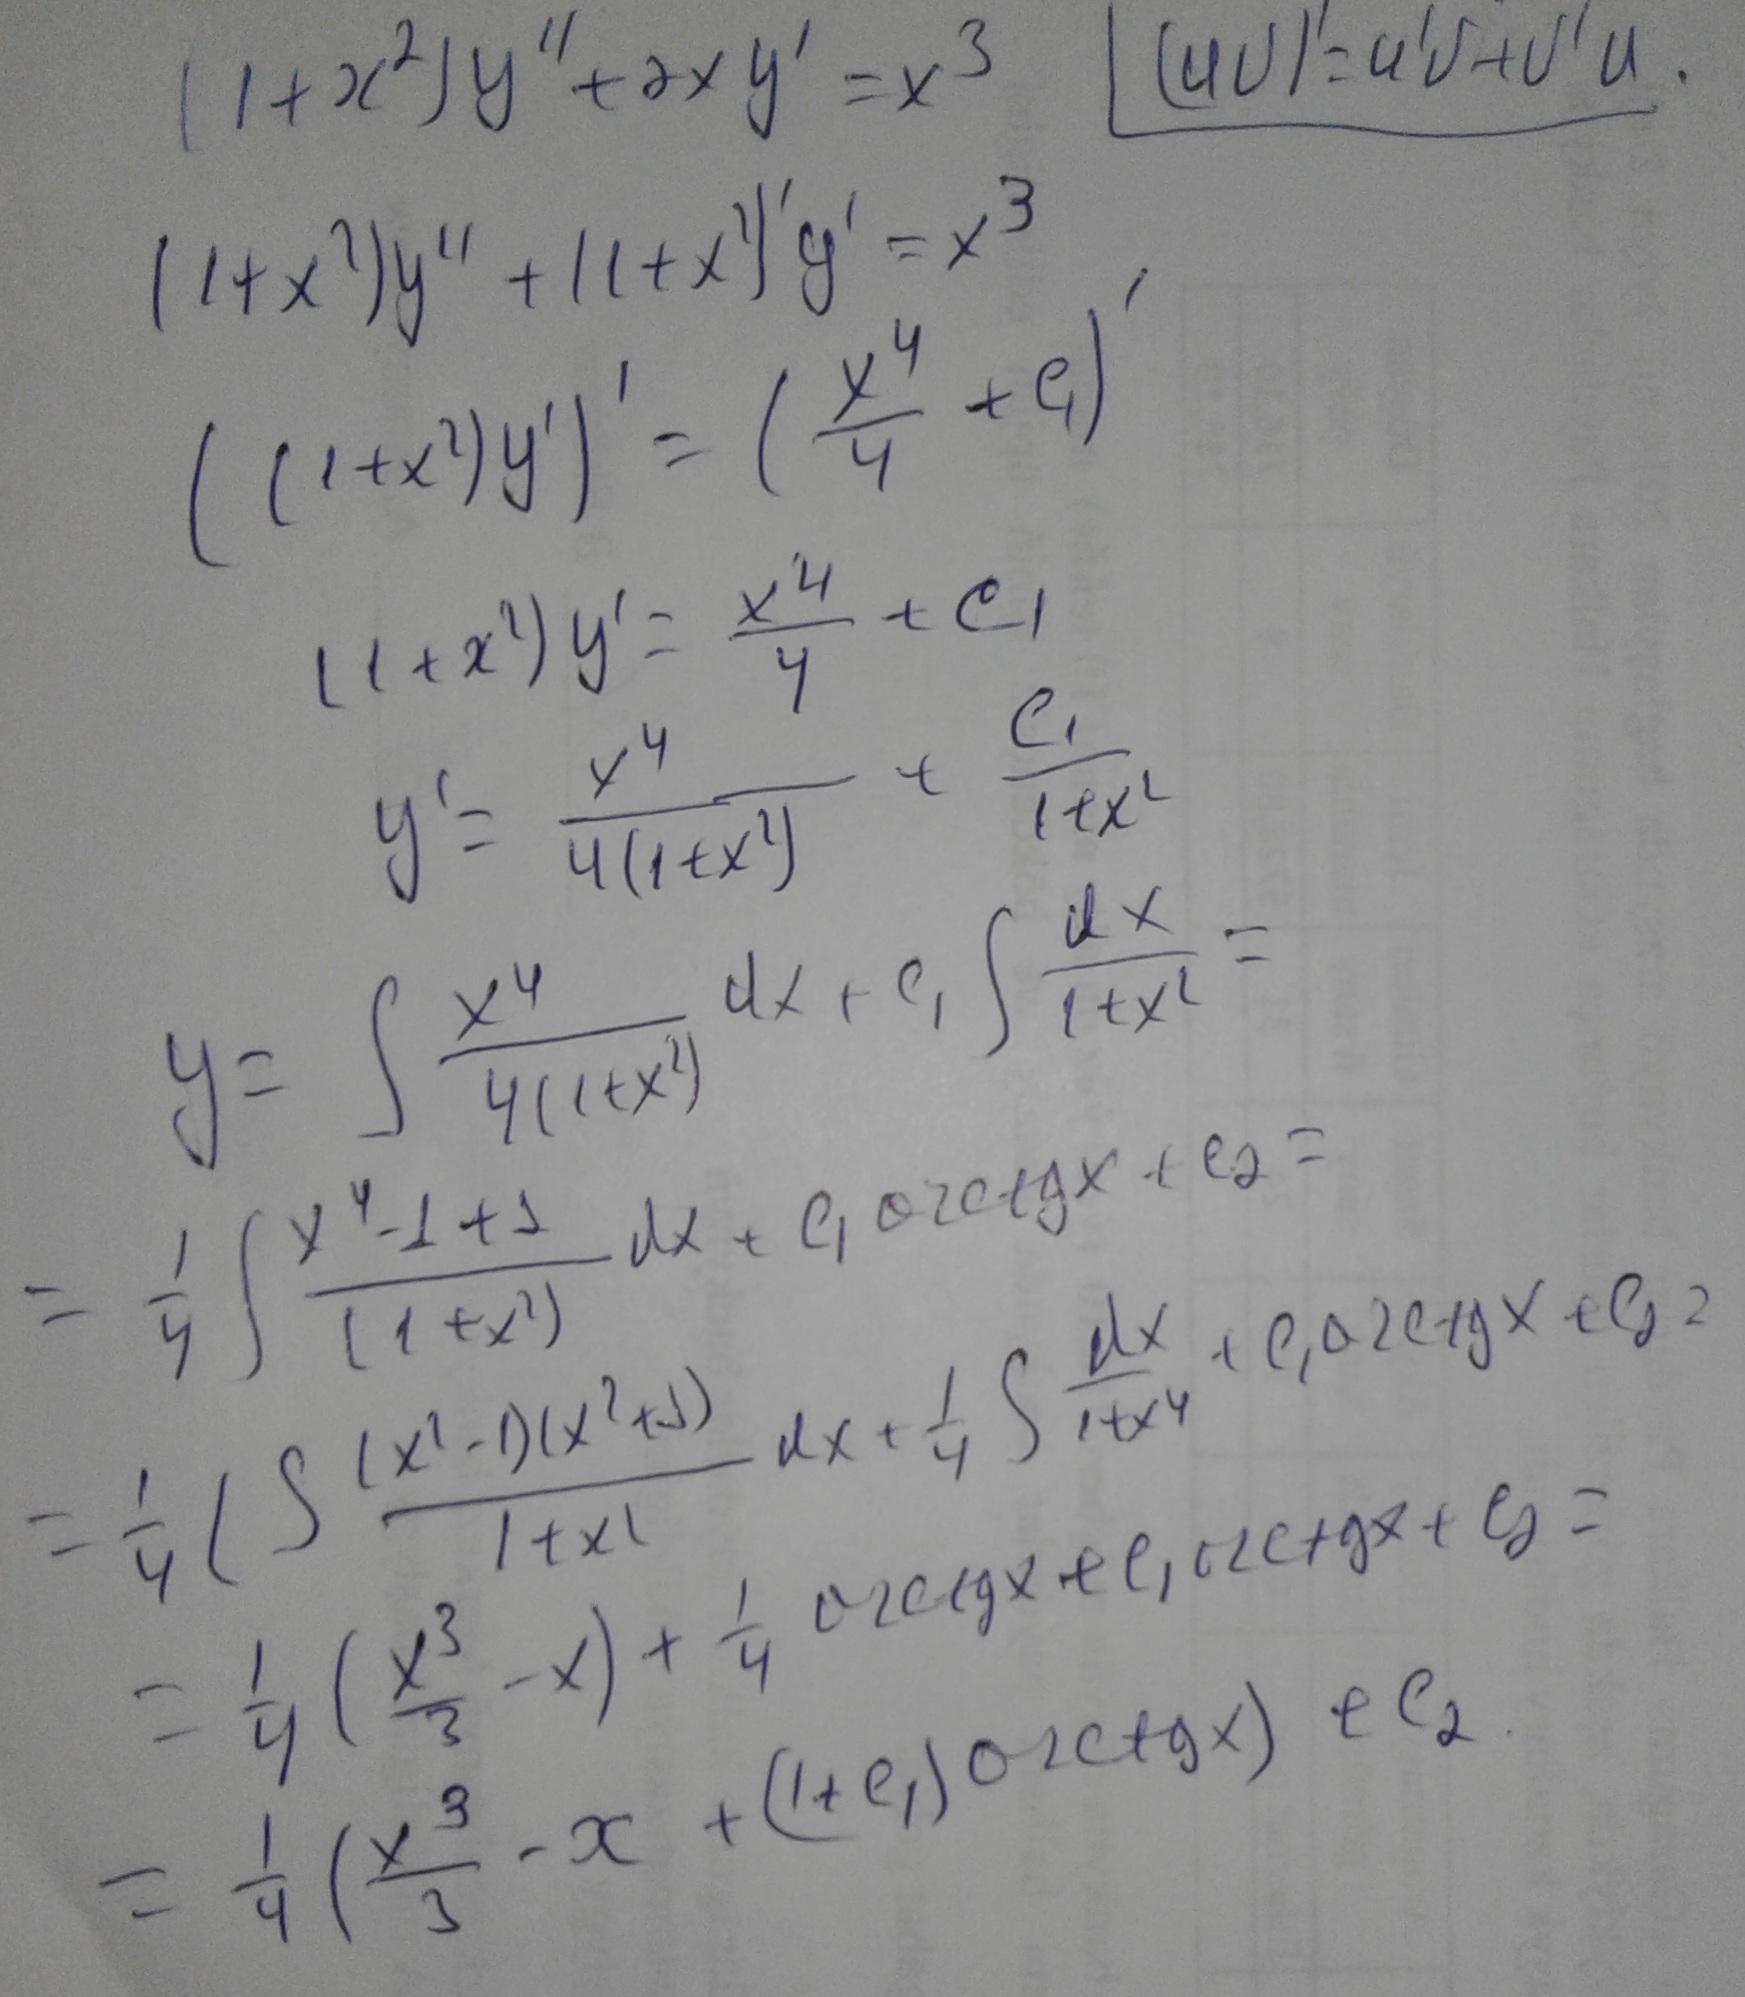 (1+x²)y''+2xy'=x³ (uv)'=u'v+v'u.
(1+x²)y''+(1+x²)'y'=x³
((1+x²)y')'=(x⁴/4+C₁)'
(1+x²)y'=x⁴/4+C₁
y'=x⁴/4(1+x²)+C₁/1+x²
y=∫x⁴/4(1+x²)dx+C₁∫dx/1+x²=
=1/4∫x⁴-1+1/(1+x²)dx+C₁arctgx+C₂=
=1/4(∫(x²-1)(x²+1)/1+x²dx+1/4∫dx/1+x⁴+C₁arctgx+C₂=
=1/4(x³/3-x)+1/4arctgx+C₁arctgx+C₂=
=1/4(x³/3-x+(1+C₁)arctgx)+C₂.